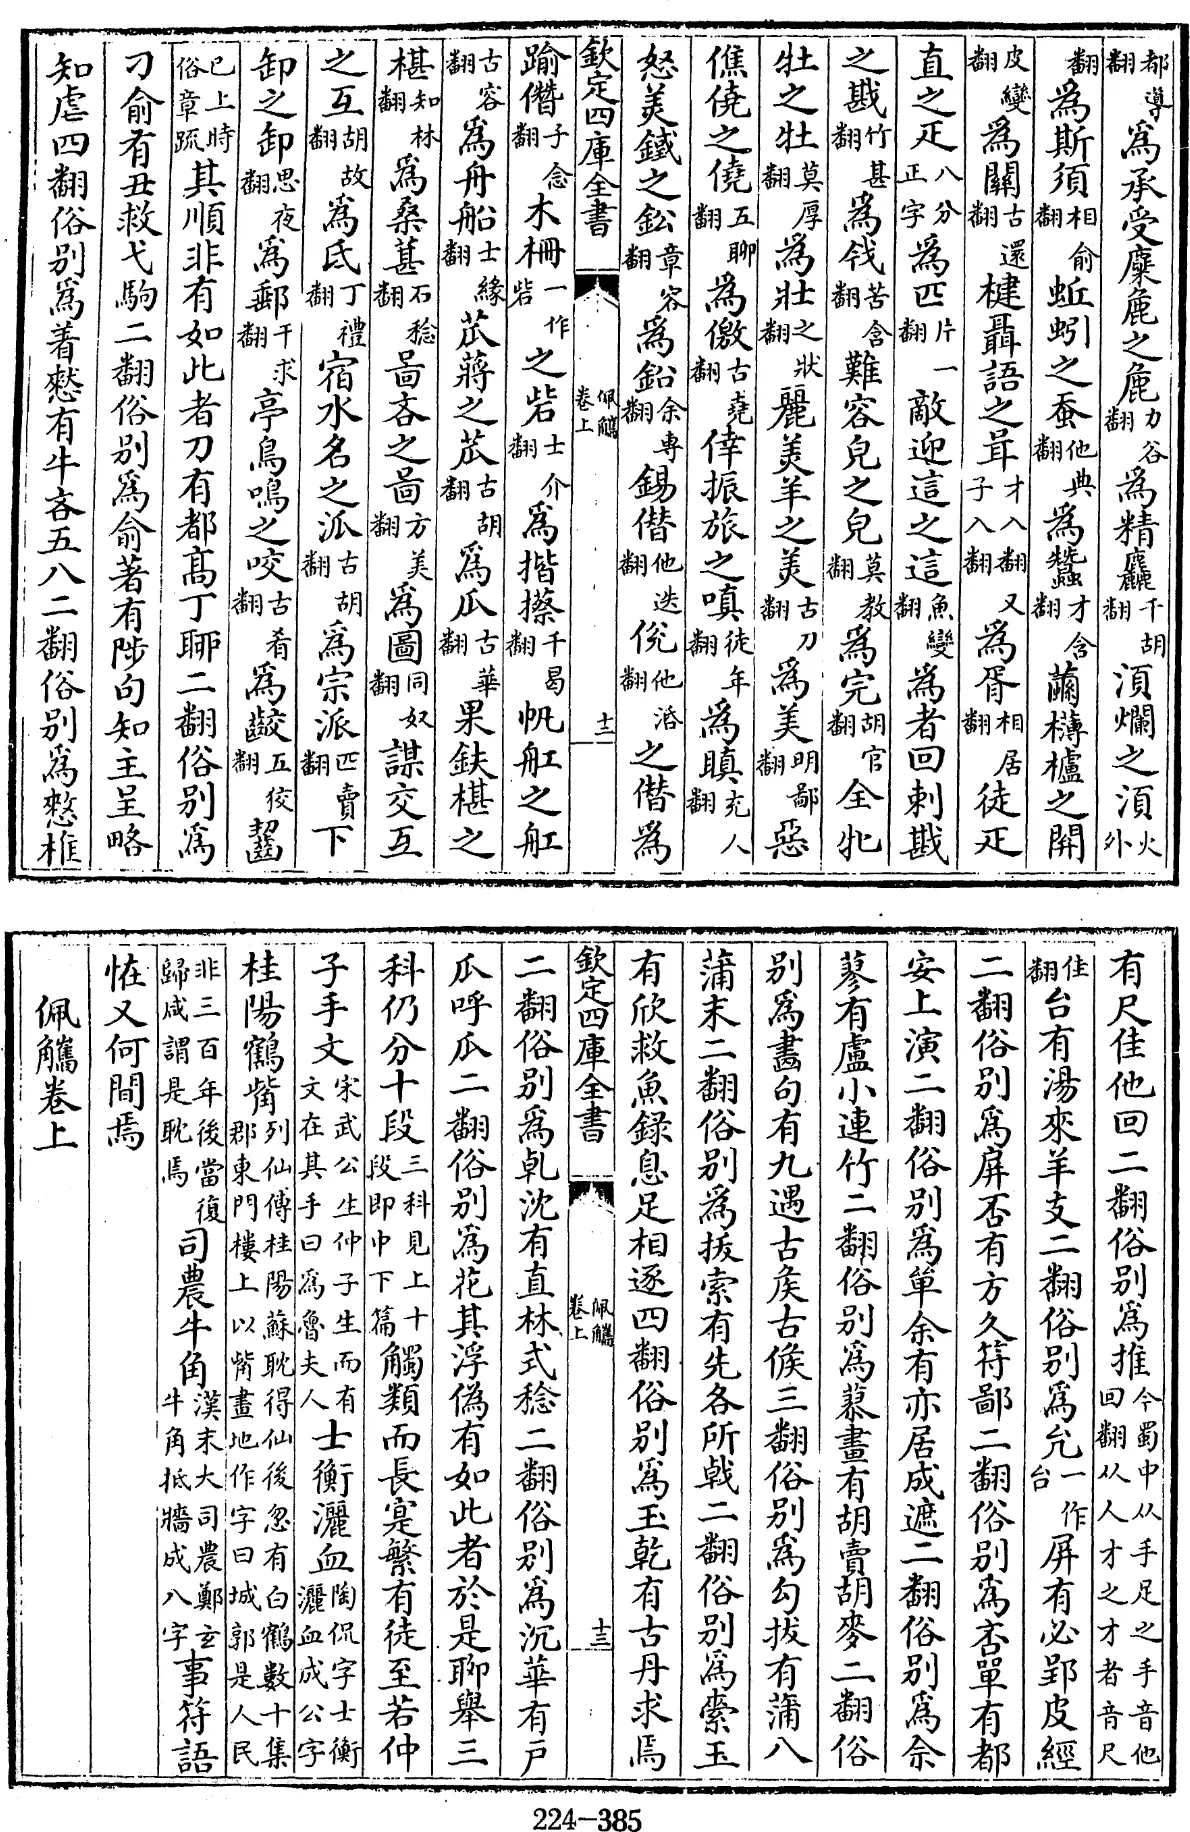 都導翻為承受麋鹿之鹿力谷翻為精麤千胡翻湏爛之湏火外
翻為斯須相俞翻蚯蚓之蚕他典翻為蠶才含翻繭欂櫨之開
皮變翻為關古還翻楗聶語之咠才入翻又子入翻為胥相居翻徒疋
直之疋八分正字為匹片一翻敵迎這之這魚變翻為者回刺戡
之戡竹甚翻為戗苦含翻難容皃之皃莫教翻為完胡官翻全牝
牡之牡莫厚翻為壯之狀翻麗羙羊之羙古刀翻為美明鄙翻惡
僬僥之僥五聊翻為儌古堯翻倖振旅之嗔徒年翻為瞋充人翻
怒羙鐵之鈆章容翻為鉛余專翻錫僣他迭翻侻他活翻之僣為
欽定四庫全書 佩觿卷上 十二
踰僭子念翻木柵一作砦之砦士介翻為揩攃千曷翻帆舡之舡
古容翻為舟船士緣翻苽蔣之苽古胡翻為瓜古華翻果鈇椹之
椹知林翻為桑葚石稔翻啚吝之啚方美翻為圖同奴翻謀交互
之互胡故翻為氐丁禮翻宿水名之泒古胡翻為宗派匹賣翻下
卸之卸思夜翻為郵千求翻亭鳥鳴之咬古肴翻為齩五狡翻齧
已上時俗章䟽其順非有如此者刀有都髙丁聊二翻俗别為
刁俞有丑救弋駒二翻俗别為俞著有陟句知主呈略
知虐四翻俗别為着憖有牛吝五八二翻俗别為憗椎
有尺佳他回二翻俗别為推今蜀中从手足之手音他回翻从人才之才者音尺
佳翻台有湯來羊支二翻俗别為㕙一作台屏有必郢皮經
二翻俗别為屏否有方久符鄙二翻俗别為否單有都
安上演二翻俗别為單余有亦居成遮二翻俗别為佘
蓼有盧小連竹二翻俗别為蓼畫有胡賣胡麥二翻俗
别為畵句有九遇古矦古候三翻俗别為勾拔有蒲八
蒲末二翻俗别為拔索有先各所戟二翻俗别為索玉
有欣救魚錄息足相逐四翻俗别為玉乾有古丹求焉
欽定四庫全書 佩觿卷上 十三
二翻俗别為乹沈有直林式稔二翻俗别為沉華有戸
瓜呼瓜二翻俗别為花其浮偽有如此者於是聊舉三
科仍分十段三科見上十段即中下篇觸類而長寔繁有徒至若仲
子手文宋武公生仲子生而有文在其手曰為魯夫人士衡灑血陶侃字士衡灑血成公字
桂陽鶴觜列仙傳桂陽蘇耽得仙後忽有白鶴數十集郡東門樓上以觜畫地作字曰城郭是人民
非三百年後當復歸咸謂是耽焉司農牛角漢末大司農鄭玄牛角抵牆成八字事符語
恠又何間焉
佩觿卷上
224-385